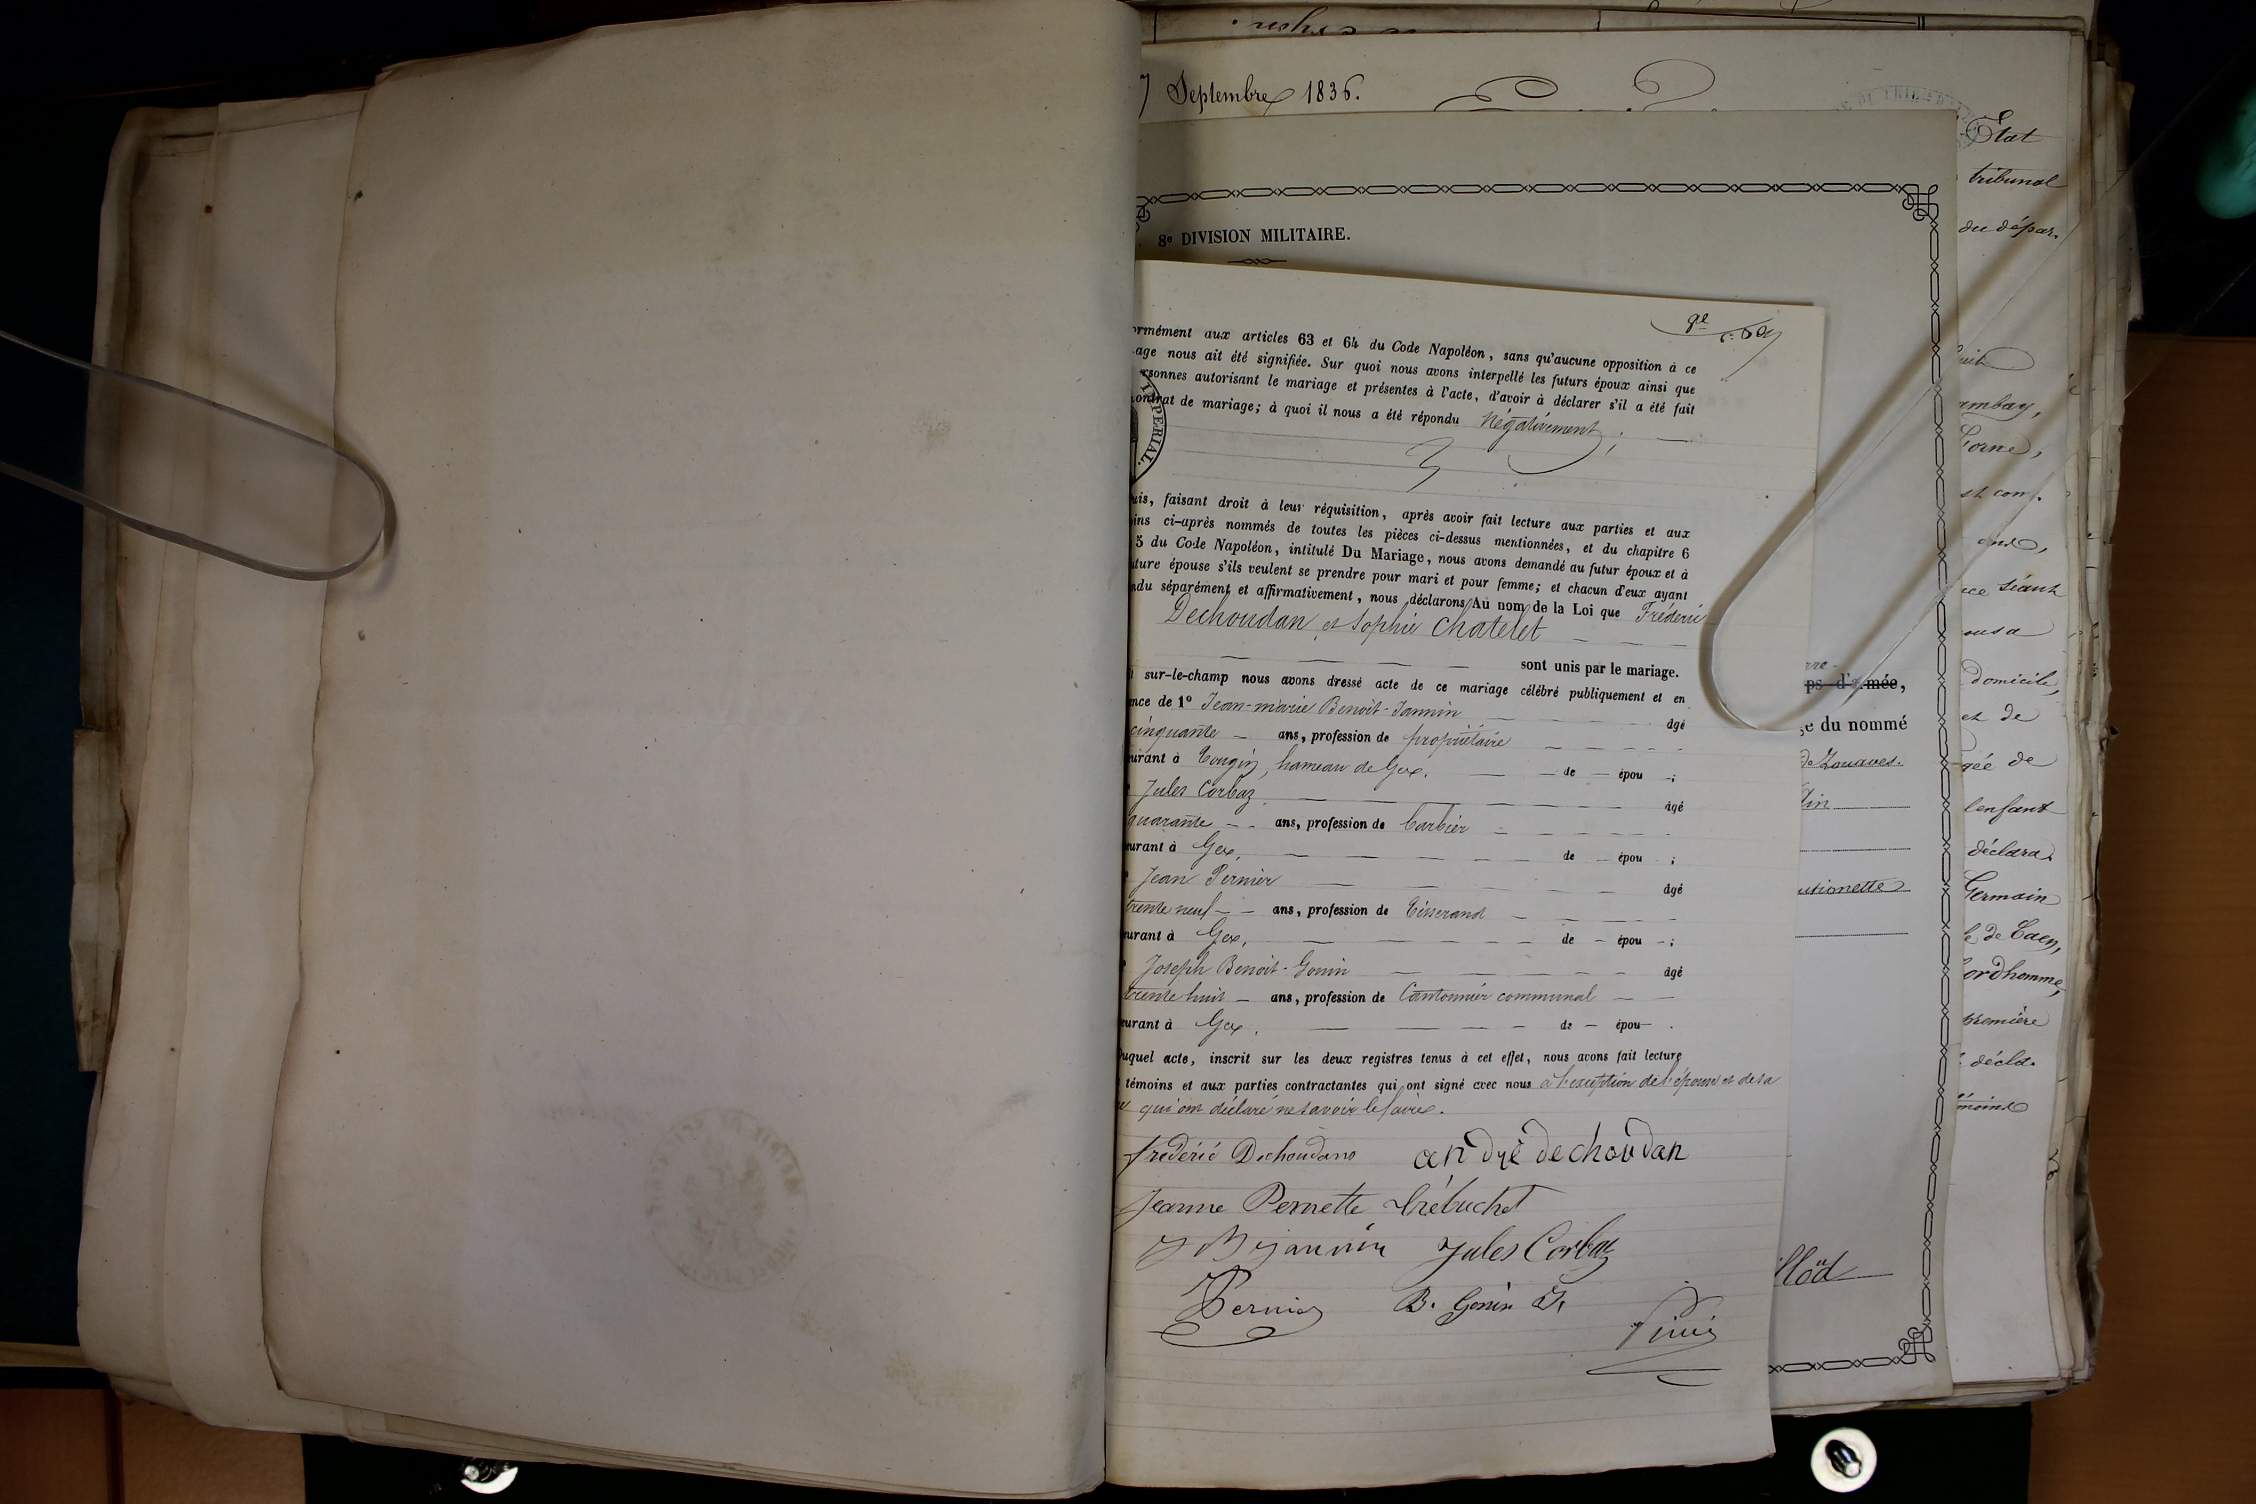 Septembre 1836.
8e DIVISION MILITAIRE.
ormément aux articles 63 et 64 du Code Napoléon, sans qu'aucune opposition à ce
age nous ait été signifiée. Sur quoi nous avons interpellé les futurs époux ainsi que
rsonnes autorisant le mariage et présentes à l'acte, d'avoir à déclarer s'il a été fait
ontrat de mariage; à quoi il nous a été répondu Négativement;
IMPERIAL.
uis, faisant droit à leur réquisition, après avoir fait lecture aux parties et aux
ins ci-après nommés de toutes les pièces ci-dessus mentionnées, et du chapitre 6
5 du Code Napoléon, intitulé Du Mariage, nous avons demandé au futur époux et à
uture épouse s'ils veulent se prendre pour mari et pour femme; et chacun d'eux ayant
ndu séparément et affirmativement, nous déclarons Au nom de la Loi que Fréderic
Dechoudan et Sophie Chatelet
sont unis par le mariage.
t sur-le-champ nous avons dressé acte de ce mariage célébré publiquement et en
nce de 1° Jean-marie Benoit-Jannin âgé
cinquante ans, profession de propriétaire
urant à Tougin, hameau de Gex. de épou ;
Jules Corbaz âgé
quarante ans, profession de barbier
urant à Gex, de épou ;
Jean Pernier âgé
trente neuf ans, profession de Tisserand
urant à Gex, de épou ;
Joseph Benoit-Gonin âgé
trente huit ans, profession de Cantonnier communal
eurant à Gex. de épou .
uquel acte, inscrit sur les deux registres tenus à cet effet, nous avons fait lecture
témoins et aux parties contractantes qui ont signé avec nous à l'exception de l'épouse et de sa
qui ont déclaré ne savoir le faire.
fréderic Dechoudans andré dechoudan
Jeanne Pernette trébuchet
Jules Corbaz
Pernier B. Gonin
État
tribunal
du dépar.
ambay,
st com.
ans,
ce séant
ps d'armée,
domicile,
et de
e du nommé
de Zouaves.
gée de
lin
l'enfant
déclara.
utionette
Germain
le de Caen,
ordhomme,
première
décla.
moins